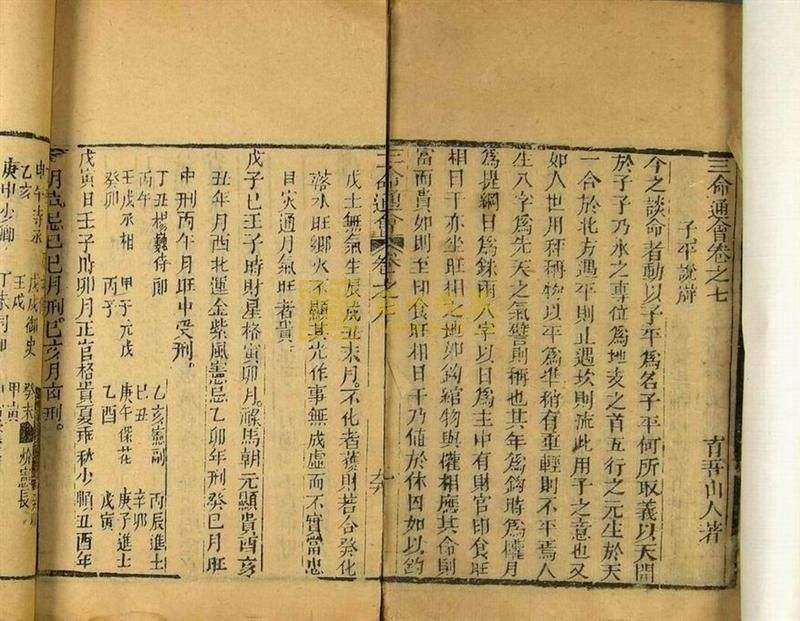 三命通會卷之七
育吾山人著
子平說辯
今之談命者動以子平為名子平何所取義以天開
於子子乃水之專位為地支之首五行之元生於天
一合於北方遇平則止遇坎則流此用子之意也又
如人世用秤稱物以平為準稍有重輕則不平焉人
生八字為先天之氣譬則稱也其年為鈎時為權月
為提綱日為銖兩八字以日為主中有財官印食旺
相日干亦坐旺相之地如鈎綰物與權相應其命則
富而貴如則至印食旺相日干乃値於休囚如以鈎
三命通會 卷之
戊土無氣生辰戌丑未月不化者發財若合癸化
落水旺鄉火不顯其光作事無成虛而不實當忠
目災通月氣旺者貴
戊子巳壬子時財星格寅卯月祿馬朝元顯貴酉亥
丑年月西北運金紫風憲忌乙卯年刑癸巳月旺
中刑丙午月旺中受刑
丁丑楊巍侍郎 乙亥憲副 丙辰進士
丙午 甲子元戎 巳丑 辛卯
壬戌丞相 丙子 庚午保花 庚子進士
癸卯 乙酉 戊寅
戊寅日壬子時卯月正官格貴夏乖秋少順丑酉年
月貴忌巳巳月刑巳亥月南刑
甲午侍丞 戊戌御史 癸未 憲長
乙亥 壬戌 甲寅
庚申少卿 丁未